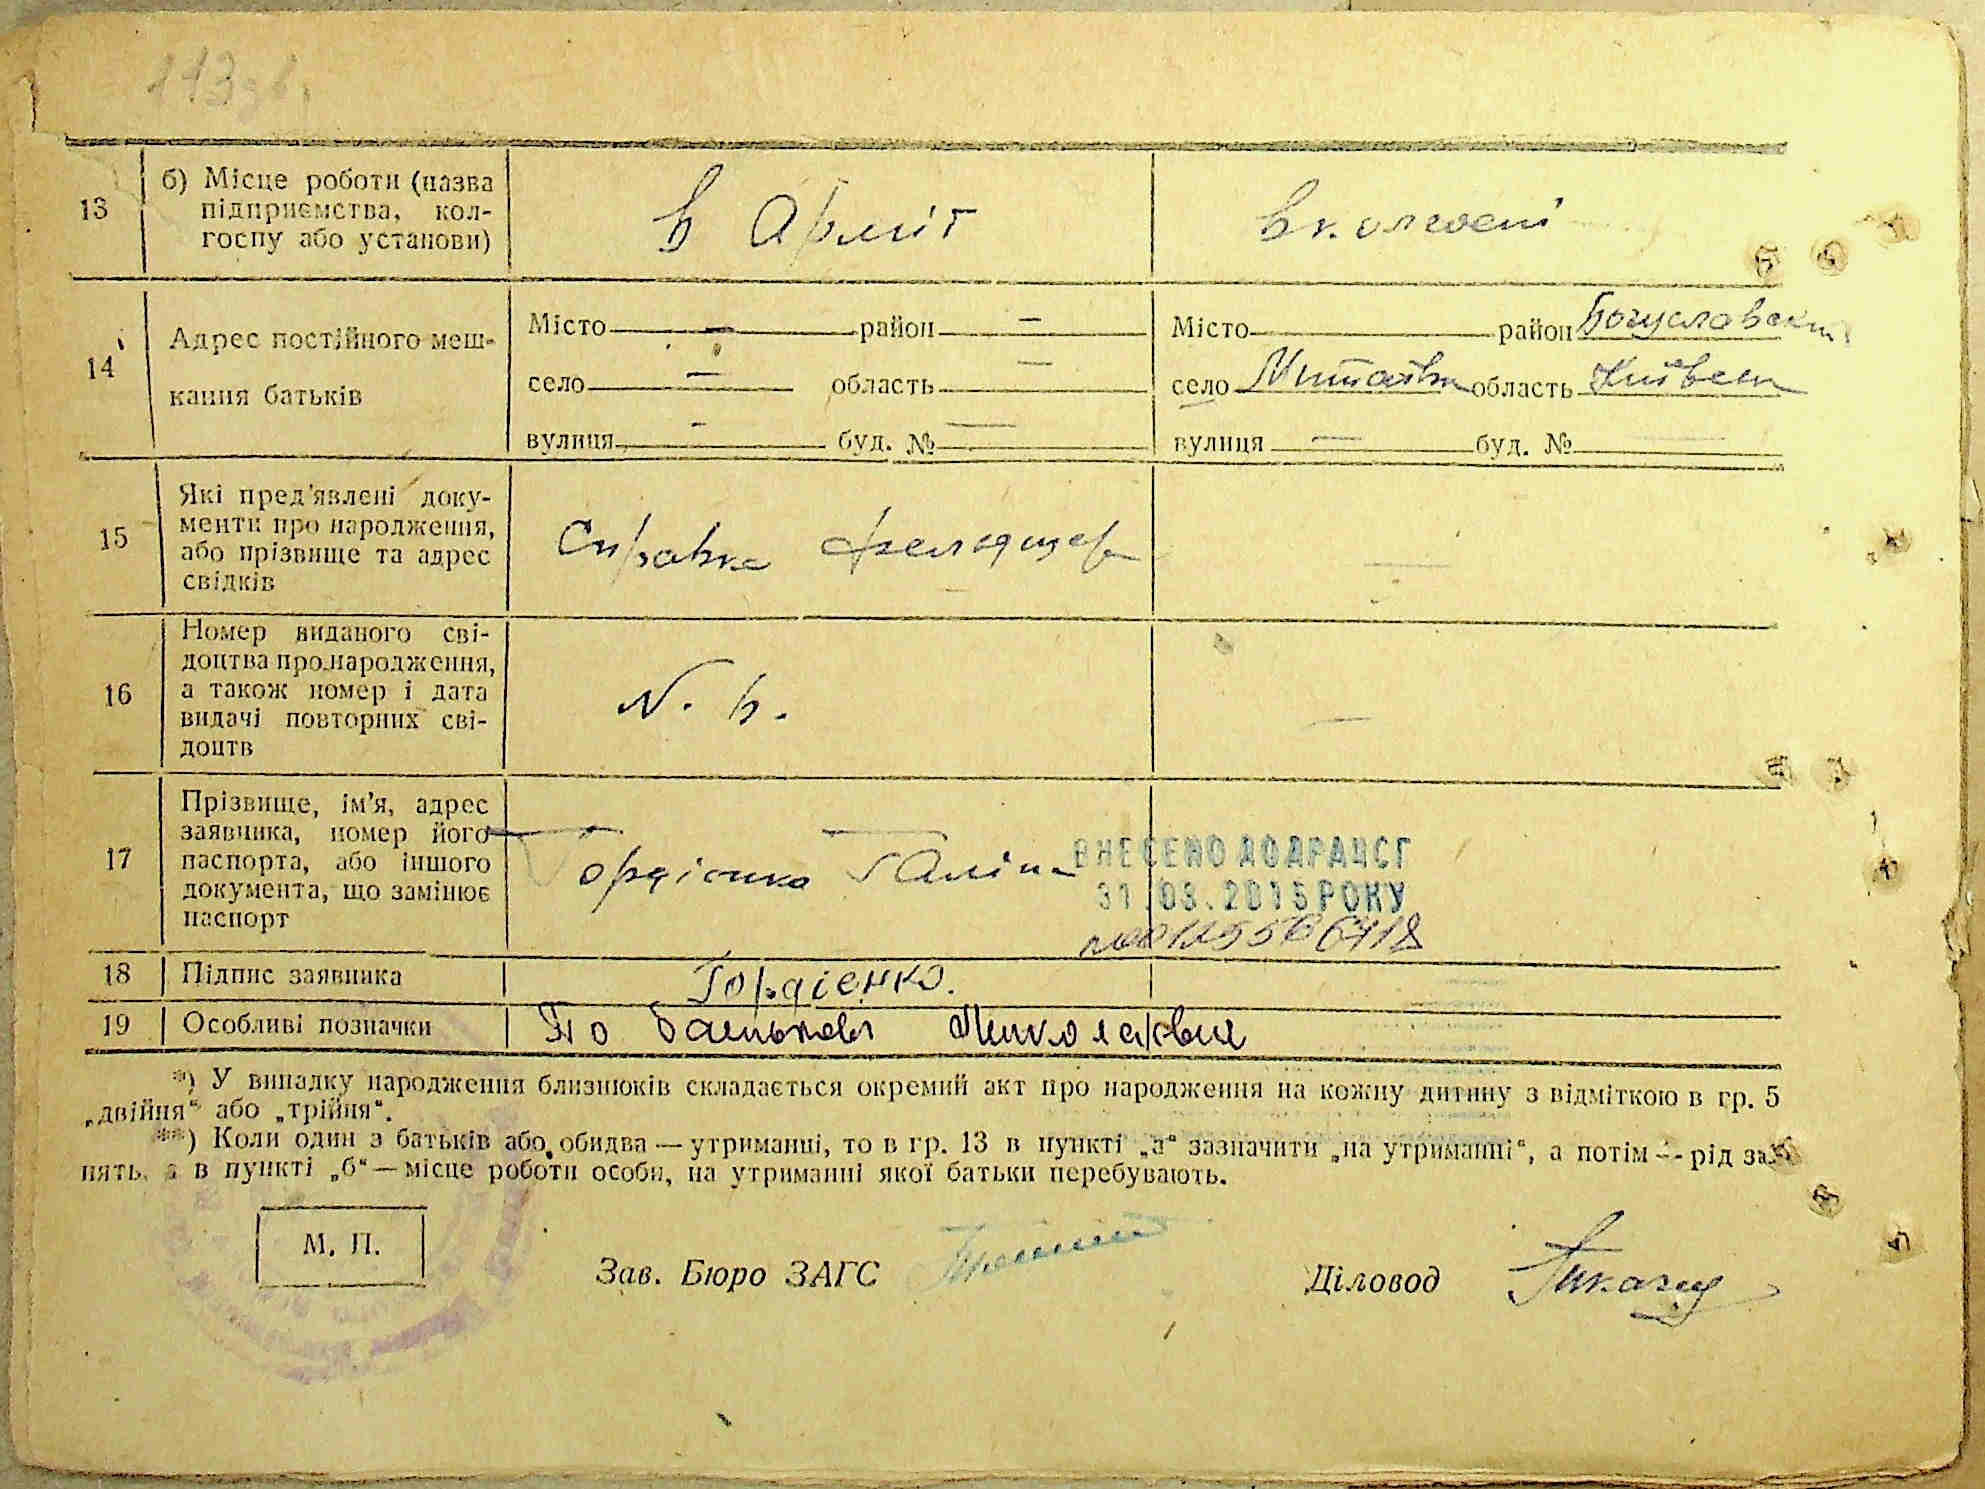 13 б) Місце роботи (назва підприємства, колгоспу або установи) В Армії в колгоспі
14 Адрес постійного мешкання батьків
Місто — район — Місто район Богуславськ
село — область — село Митаївк область Київськ
вулиця — буд. № — вулиця — буд. №
15 Які пред'явлені документи про народження, або прізвище та адрес свідків Справка фельдшер —
16 Номер виданого свідоцтва про народження, а також номер і дата видачі повторних свідоцтв —
17 Прізвище, ім'я, адрес заявника, номер його паспорта, або іншого документа, що замінює паспорт Гордієнко Галіна
ВНЕСЕНО ДО ДРАЦСГ
31.03.2015 РОКУ
18 Підпис заявника Гордієнко.
19 Особливі позначки По батькові Миколаївна
*) У випадку народження близнюків складається окремий акт про народження на кожну дитину з відміткою в гр. 5
„двійня“ або „трійня“.
**) Коли один з батьків або обидва — утриманці, то в гр. 13 в пункті „а“ зазначити „на утриманні“, а потім — рід за-
нять, а в пункті „б“ — місце роботи особи, на утриманні якої батьки перебувають.
М. П.
Зав. Бюро ЗАГС Діловод